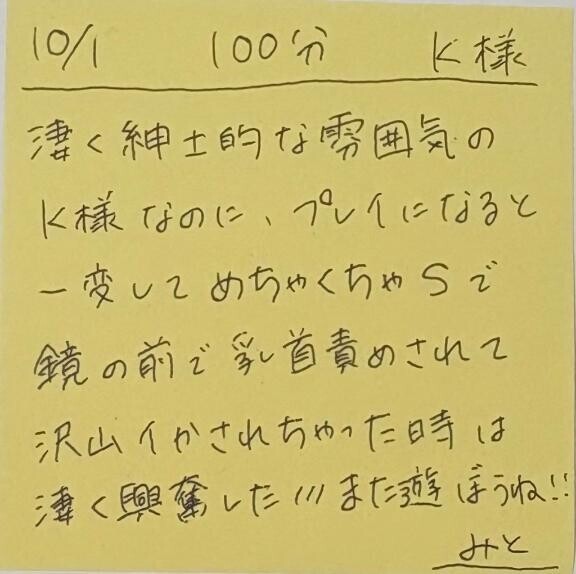 10/1 100分 K様
凄く紳士的な雰囲気の
K様なのに、プレイになると
一変してめちゃくちゃSで
鏡の前で乳首責めされて
沢山イかされちゃった時は
凄く興奮した///また遊ぼうね!!
みと